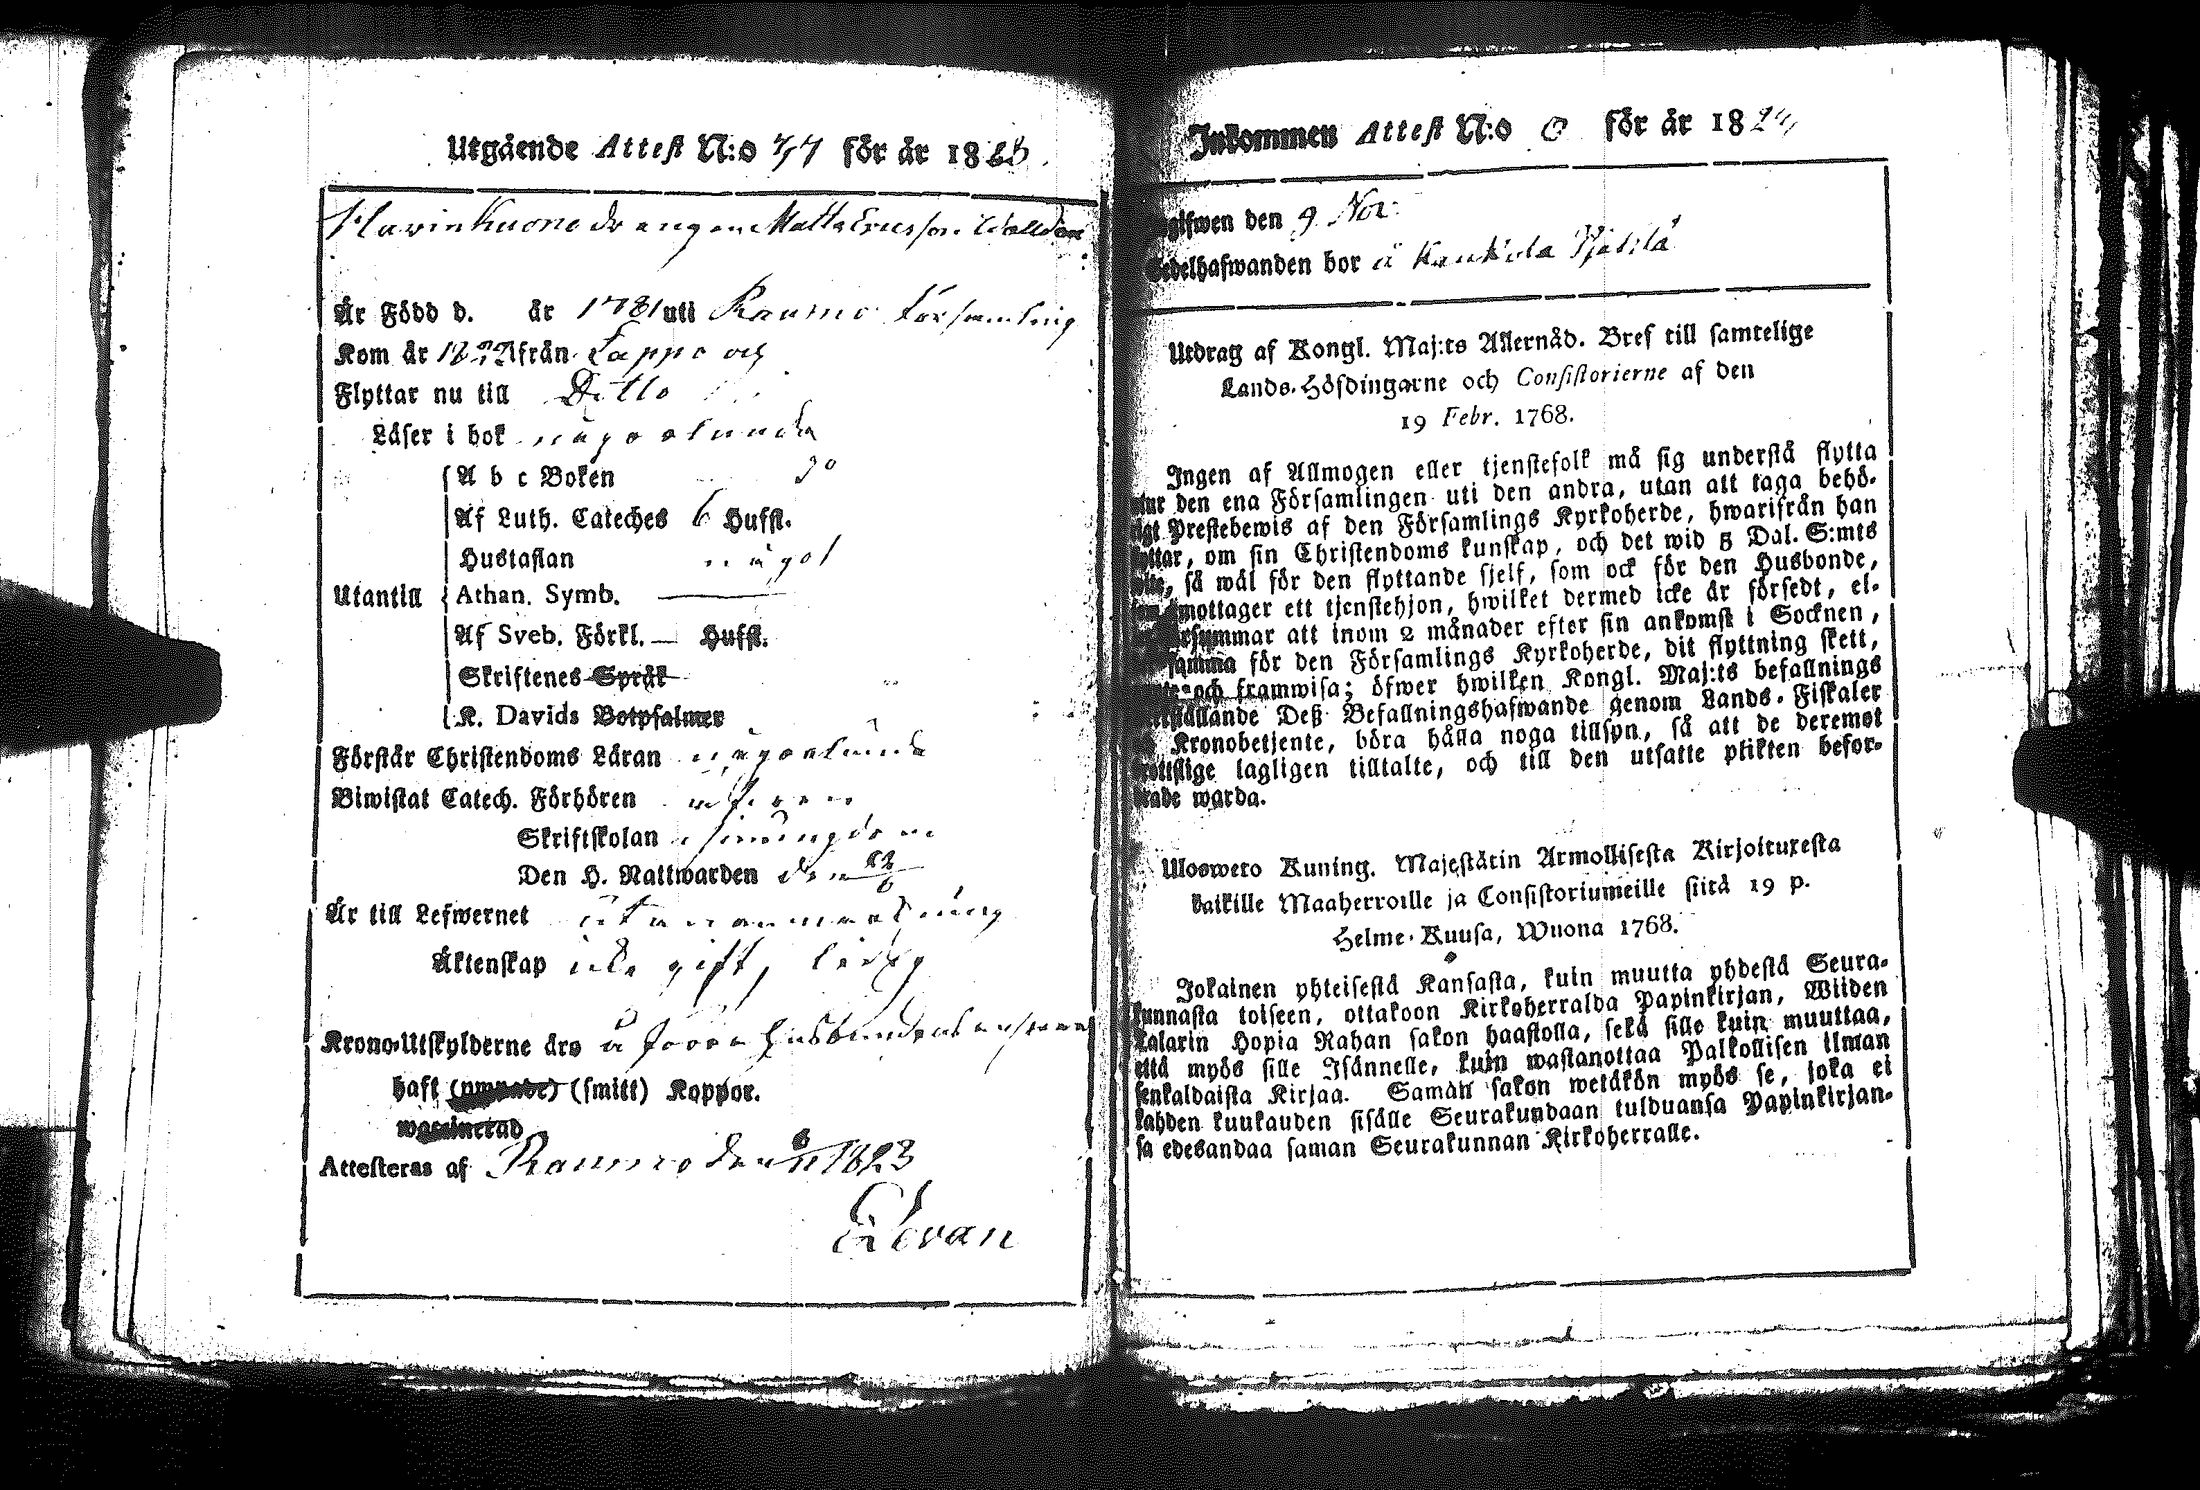 Utgående Attest N:o 77 för år 18
drängen Matts Ericsson
År Född d. år 1781 uti Raumo Församling
Kom år 1822 från Lappo och
Flyttar nu till Ditto
Läser i bok någorlunda
A b c Boken
Af Luth. Cateches 6 Hufst.
Hustaflan något
Utantill Athan. Symb. —
Af Sveb. Förkl. — Hufst.
Skriftenes Språk
K. Davids Botpsalmer
Förstår Christendoms Läran någorlunda
Biwistat Catech. Förhören
Skriftskolan
Den H. Nattwarden den
Är till Lefwernet utan anmärkning
Äktenskap icke gift, ledig
Krono-Utskylderne äro å förra husbondens
haft (ympade) (smitt) Koppor.
waccinerad
Attesteras af Raumo den 1823
Levan
Inkommen Attest N:o för år 1824
ngifwen den 9 Nov:
Sedelhafwanden bor å
Utdrag af Kongl. Maj:ts Allernåd. Bref till samtelige
Lands-Höfdingarne och Consistorierne af den
19 Febr. 1768.
Ingen af Allmogen eller tjenstefolk må sig understå flytta
utur den ena Församlingen uti den andra, utan att taga behö-
rigt Prestebewis af den Församlings Kyrkoherde, hwarifrån han
flyttar, om sin Christendoms kunskap, och det wid 5 Dal. S:mts
wite, så wäl för den flyttande sjelf, som ock för den Husbonde,
som emottager ett tjenstehjon, hwilket dermed icke är försedt, el-
försummar att inom 2 månader efter sin ankomst i Socknen,
samma för den Församlings Kyrkoherde, dit flyttning skett,
och framwisa; öfwer hwilken Kongl. Maj:ts befallnings
Deß Befallningshafwande genom Lands-Fiskaler
Kronobetjente, böra hålla noga tillsyn, så att de deremot
brottslige lagligen tilltalte, och till den utsatte plikten befor-
drade warda.
Uloswero Kuning. Majestätin Armollisesta Kirjoituxesta
kaikille Maaherroille ja Consistoriumeille siitä 19 p.
Helme-Kuusa, Wuona 1768.
Jokainen yhteisestä Kansasta, kuin muutta yhdestä Seura-
kunnasta toiseen, ottakoon Kirkoherralda Papinkirjan, Wiiden
Talarin Hopia Rahan sakon haastolla, sekä sille kuin muuttaa,
että myös sille Isännelle, kuin wastanottaa Palkollisen ilman
senkaldaista Kirjaa. Samän sakon wetäkön myös se, joka ei
kahden kuukauden sisälle Seurakundaan tulduansa Papinkirjan-
sa edesandaa saman Seurakunnan Kirkoherralle.